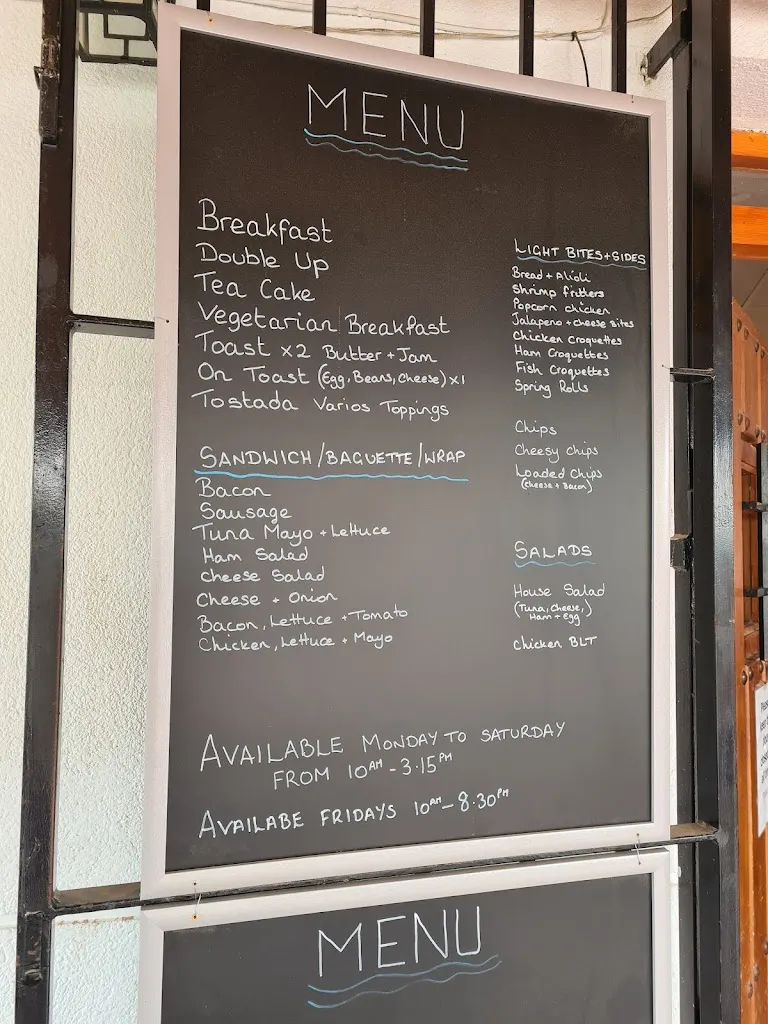 MENU
Breakfast
Double Up
Tea Cake
Vegetarian Breakfast
Toast x2 Butter + Jam
On Toast (Egg, Beans, Cheese) x1
Tostada Varios Toppings
SANDWICH/BAGUETTE/WRAP
Bacon
Sausage
Tuna Mayo + Lettuce
Ham Salad
Cheese Salad
Cheese + Onion
Bacon, Lettuce + Tomato
Chicken, Lettuce + Mayo
LIGHT BITES + SIDES
Bread + Alioli
Shrimp fritters
Popcorn chicken
Jalapeno + cheese Bites
Chicken Croquettes
Ham Croquettes
Fish Croquettes
Spring Rolls
Chips
Cheesy chips
Loaded Chips
(Cheese + Bacon)
SALADS
House Salad
(Tuna, Cheese,)
Ham + Egg
Chicken BLT
AVAILABLE MONDAY TO SATURDAY
FROM 10AM - 3.15PM
AVAILABE FRIDAYS 10AM - 8.30PM
MENU